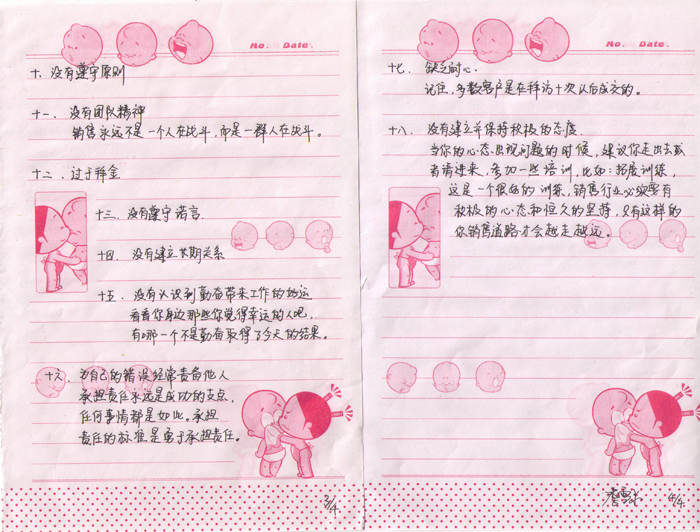 No. Date.
十、没有遵守原则
十一、没有团队精神
销售永远不是一个人在战斗，而是一群人在战斗。
十二、过于拜金
十三、没有遵守诺言
十四、没有建立长期关系
十五、没有认识到勤奋带来工作的好运
看看你身边那些你觉得幸运的人吧，
有哪一个不是勤奋取得了今天的结果。
十六、为自己的错误经常责备他人
承担责任永远是成功的支点，
任何事情都是如此。承担
责任的标准是勇于承担责任。
3/4
No. Date.
十七、缺乏耐心
记住，多数客户是在拜访十次以后成交的。
十八、没有建立并保持积极的态度
当你的心态出现问题的时候，建议你走出去或
者请进来，参加一些培训，比如：拓展训练，
这是一个很好的训练，销售行业必须要有
积极的心态和恒久的坚持，只有这样的
你销售道路才会越走越远。
4/4